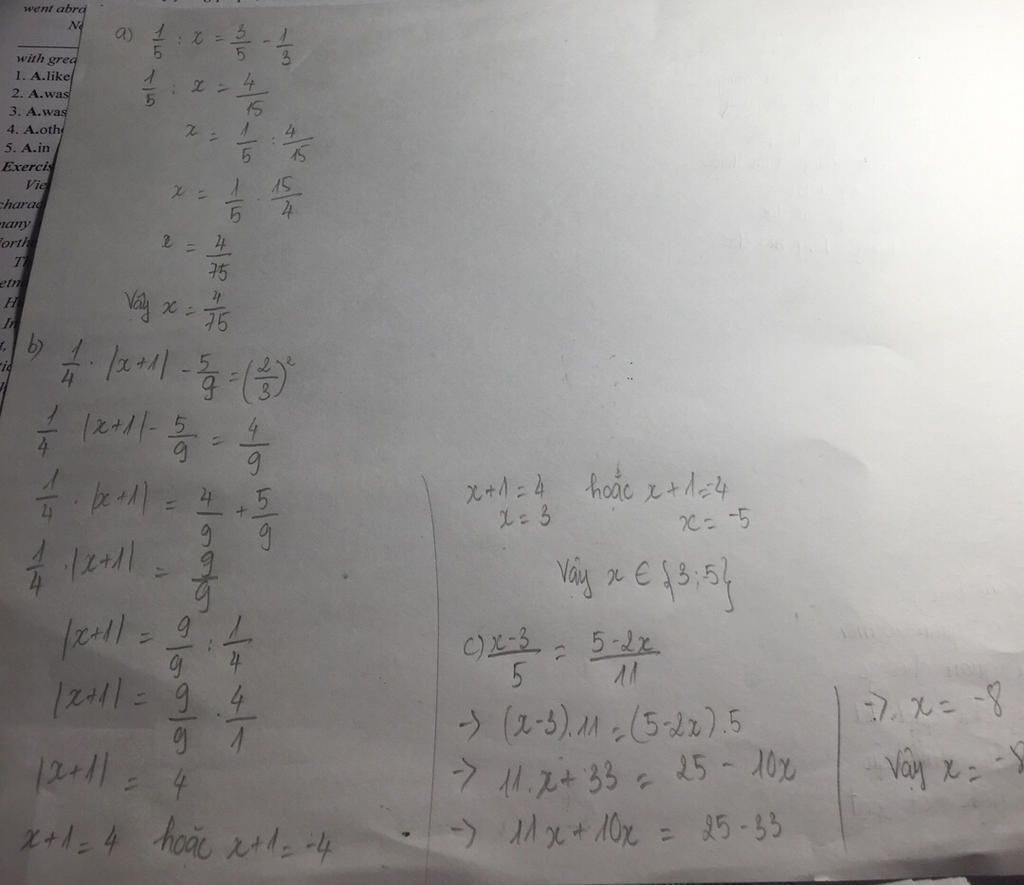 went abra
with grea
1. A.like
2. A.was
3. A.was
4. A.oth
5. A.in
Exercis
Vie
charac
many
a) 1/5 : x = 3/5 - 1/3
1/5 : x = 4/15
x = 1/5 : 4/15
x = 1/5 . 15/4
x = 4/75
Vậy x = 4/75
b) 1/4 . |x+1| - 5/9 = (2/3)²
1/4 |x+1| - 5/9 = 4/9
1/4 . |x+1| = 4/9 + 5/9
1/4 . |x+1| = 9/9
|x+1| = 9/9 : 1/4
|x+1| = 9/9 . 4/1
|x+1| = 4
x+1 = 4 hoặc x+1 = -4
x+1 = 4 hoặc x+1 = -4
x = 3 x = -5
Vậy x ∈ {3; 5}
c) x-3/5 = 5-2x/11
-> (x-3).11 = (5-2x).5
-> 11.x + 33 = 25 - 10x
-> 11x + 10x = 25 - 33
-> x = -8
Vậy x = -8